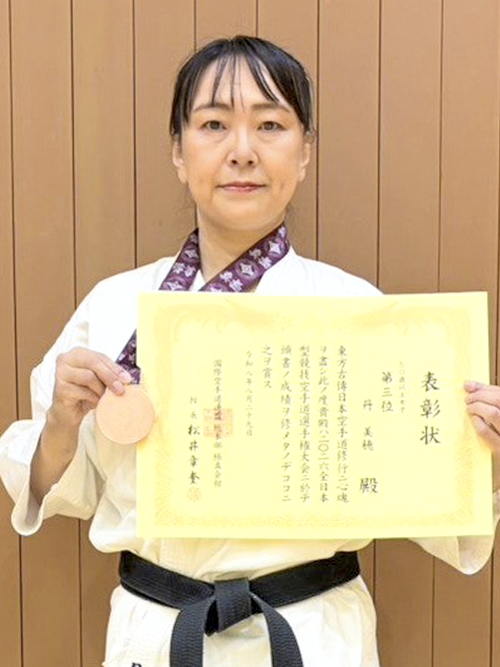 表彰状
第三位
丹 美穂 殿
東方古傳日本空手道修行ニ心魂
ヲ盡シ此ノ度貴殿ハ二〇二六全日本
型競技空手道選手権大会ニ於テ
頭書ノ成績ヲ修メタノデココニ
之ヲ賞ス
令和八年六月二十九日
国際空手道連盟 総本部 極真会館
館長 松井章奎